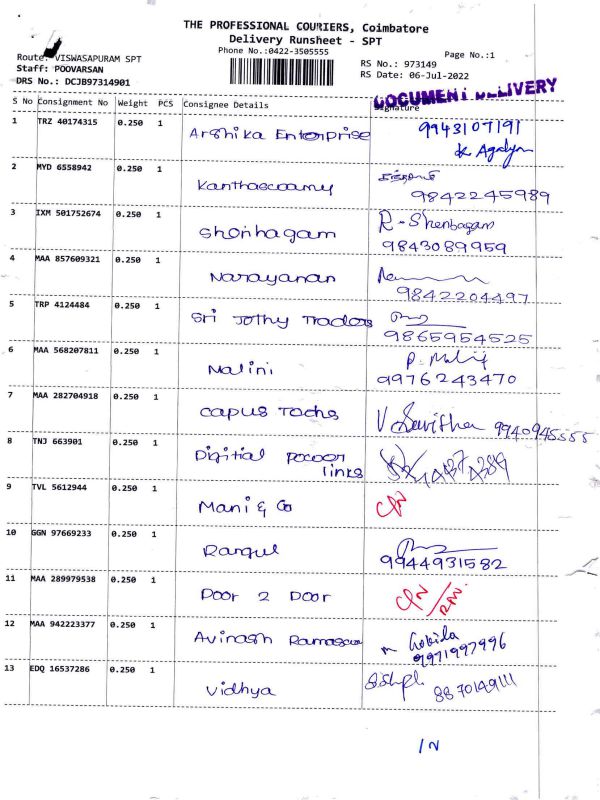 THE PROFESSIONAL COURIERS, Coimbatore
Delivery Runsheet - SPT
Phone No.:0422-3505555
Page No.:1
Route: VISWASAPURAM SPT
Staff: POOVARSAN
DRS No.: DCJB97314901
RS No.: 973149
RS Date: 06-Jul-2022
DOCUMENT DELIVERY
S No Consignment No Weight PCS Consignee Details Signature
1 TRZ 40174315 0.250 1 Arshika Enterprise 9943107191
K Agalya
2 MYD 6558942 0.250 1 Kanthaswamy
9842245989
3 IXM 501752674 0.250 1 Shonhagam R-Shenbagam
9843089959
4 MAA 857609321 0.250 1 Narayanan
9842204497
5 TRP 4124484 0.250 1 Sri Jothy Traders
9865954525
6 MAA 568207811 0.250 1 Nalini P. Malini
9976243470
7 MAA 282704918 0.250 1 Capus Techs V. Savitha 9940945555
8 TNJ 663901 0.250 1 Digitial power
links
9 TVL 5612944 0.250 1 Mani & Co
10 GGN 97669233 0.250 1 Rangul
9944931582
11 MAA 289979538 0.250 1 Door 2 Door
12 MAA 942223377 0.250 1 Avinash
9971997996
13 EDQ 16537286 0.250 1 Vidhya
8870149111